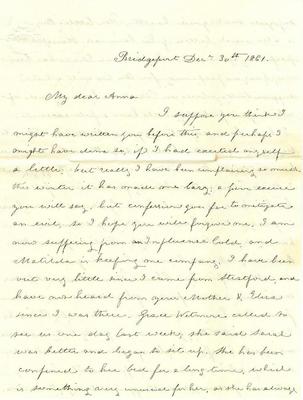 Bridgeport Dec. 30th 1861.
My dear Anna
I suppose you think I
might have written you before this, and perhaps I
might have done so, if I had exerted myself
a little, but really I have been so much
this winter it has made me lazy; a poor excuse
you will say, but confession goes far to mitigate
an evil, so I hope you will forgive me, I am
now suffering from an Influenza Cold, and
Matilda is keeping me company, I have been
out very little since I came from Stratford, and
have not heard from your Mother & Eliza
since I was there. Grace Wetmore called to
see us one day last week, she said Sarah
was better and began to sit up. She has been
confined to her bed for a long time, which
is something very unusual for her, as she has always